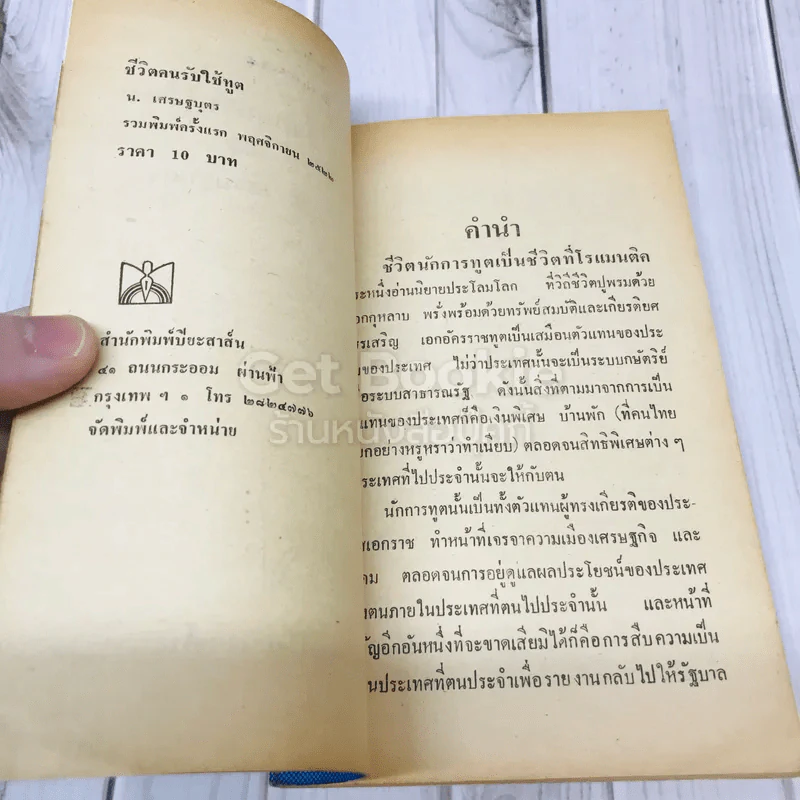 ชีวิตคนรับใช้ทูต
น. เศรษฐบุตร
รวมพิมพ์ครั้งแรก พฤศจิกายน ๒๕๒๒
ราคา 10 บาท
สำนักพิมพ์ปิยะสาส์น
๔๑ ถนนกระออม ผ่านฟ้า
กรุงเทพ ฯ ๑ โทร ๒๘๒๔๗๗๖
จัดพิมพ์และจำหน่าย
คำนำ
ชีวิตนักการทูตเป็นชีวิตที่โรแมนติค
ระหนึ่งอ่านนิยายประโลมโลก ที่วิถีชีวิตปูพรมด้วย
อกกุหลาบ พรั่งพร้อมด้วยทรัพย์สมบัติและเกียรติยศ
รรเสริญ เอกอัครราชทูตเป็นเสมือนตัวแทนของประ
ของประเทศ ไม่ว่าประเทศนั้นจะเป็นระบบกษัตริย์
ระบบสาธารณรัฐ ดังนั้นสิ่งที่ตามมาจากการเป็น
แทนของประเทศก็คือเงินพิเศษ บ้านพัก (ที่คนไทย
ยกอย่างหรูหราว่าทำเนียบ) ตลอดจนสิทธิพิเศษต่าง ๆ
ระเทศที่ไปประจำนั้นจะให้กับตน
นักการทูตนั้นเป็นทั้งตัวแทนผู้ทรงเกียรติของประ-
ศเอกราช ทำหน้าที่เจรจาความเมืองเศรษฐกิจ และ
คม ตลอดจนการอยู่ดูแลผลประโยชน์ของประเทศ
งตนภายในประเทศที่ตนไปประจำนั้น และหน้าที่
ัญอีกอันหนึ่งที่จะขาดเสียมิได้ก็คือการสืบความเป็น
นประเทศที่ตนประจำเพื่อรายงานกลับไปให้รัฐบาล
Get Bookie
ร้านหนังสือเก็ตบุ๊คกี้